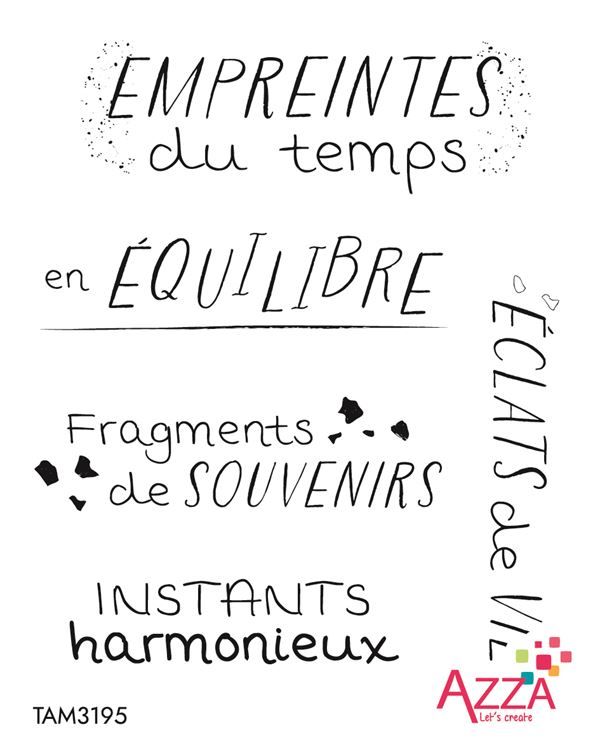 EMPREINTES
du temps
en ÉQUILIBRE
ÉCLATS de VIL
Fragments
de SOUVENIRS
INSTANTS
harmonieux
AZZA
Let's create
TAM3195